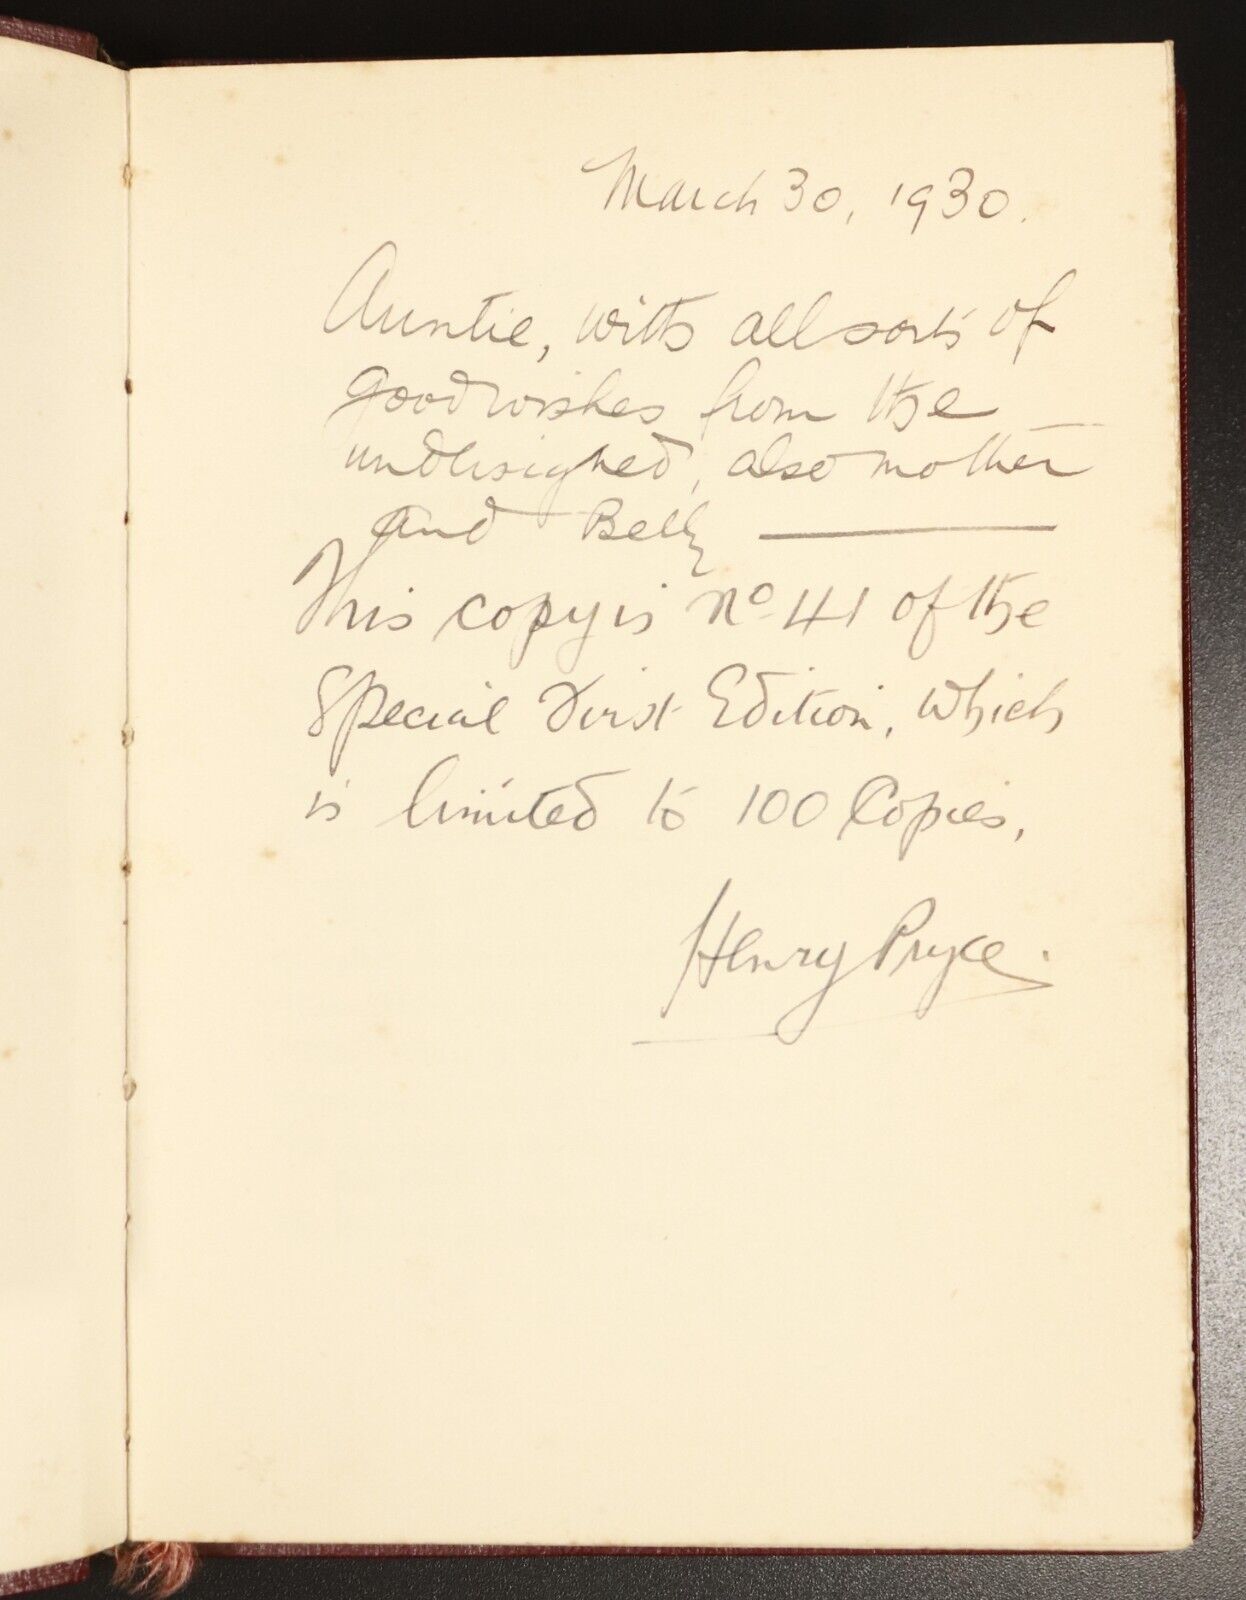 March 30, 1930.
Auntie, with all sorts of
good wishes from the
undersigned, also mother
and Betty
This copy is No 41 of the
Special First Edition, which
is limited to 100 Copies,
Henry Pryce.